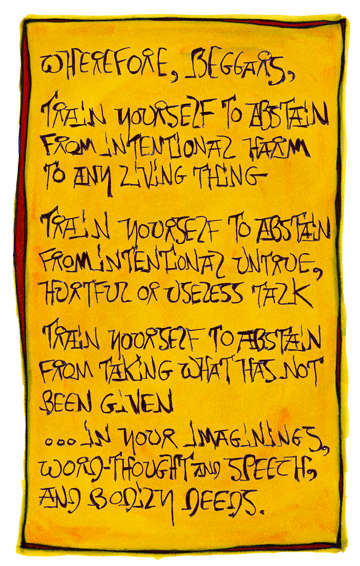 WHEREFORE, BEGGARS,
TRAIN YOURSELF TO ABSTAIN
FROM INTENTIONAL HARM
TO ANY LIVING THING
TRAIN YOURSELF TO ABSTAIN
FROM INTENTIONAL UNTRUE,
HURTFUL OR USELESS TALK
TRAIN YOURSELF TO ABSTAIN
FROM TAKING WHAT HAS NOT
BEEN GIVEN
... IN YOUR IMAGININGS,
WORD-THOUGHT AND SPEECH,
AND BODILY DEEDS.